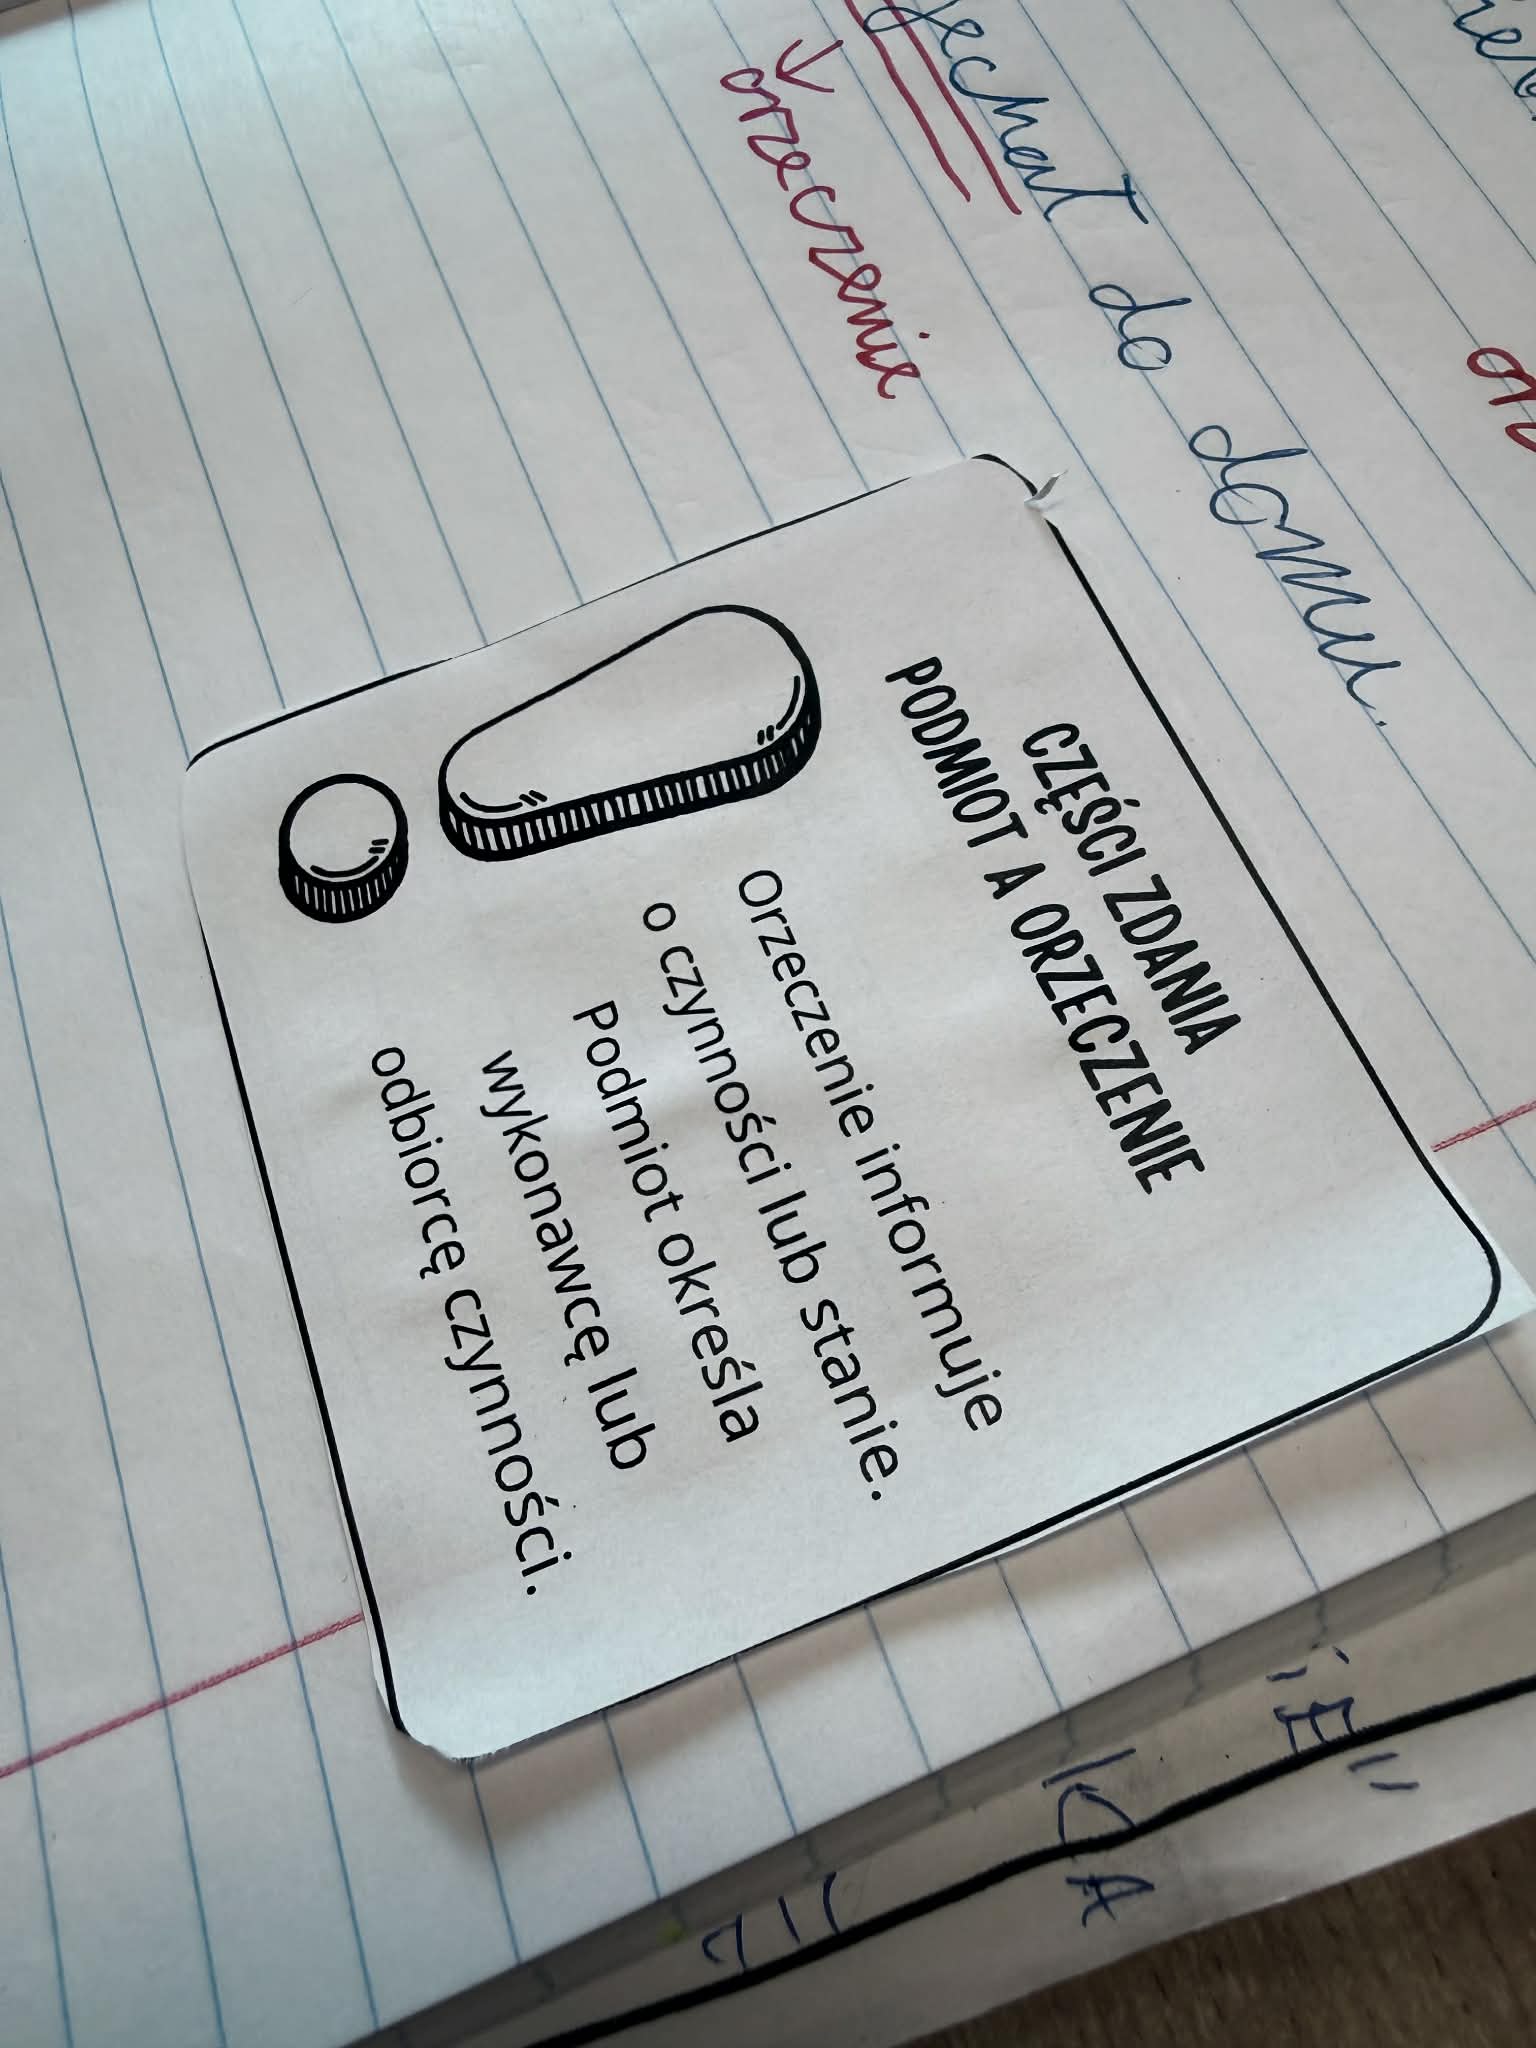 jechał do domu.
orzeczenie
CZĘŚCI ZDANIA
PODMIOT A ORZECZENIE
Orzeczenie informuje
o czynności lub stanie.
Podmiot określa
wykonawcę lub
odbiorcę czynności.